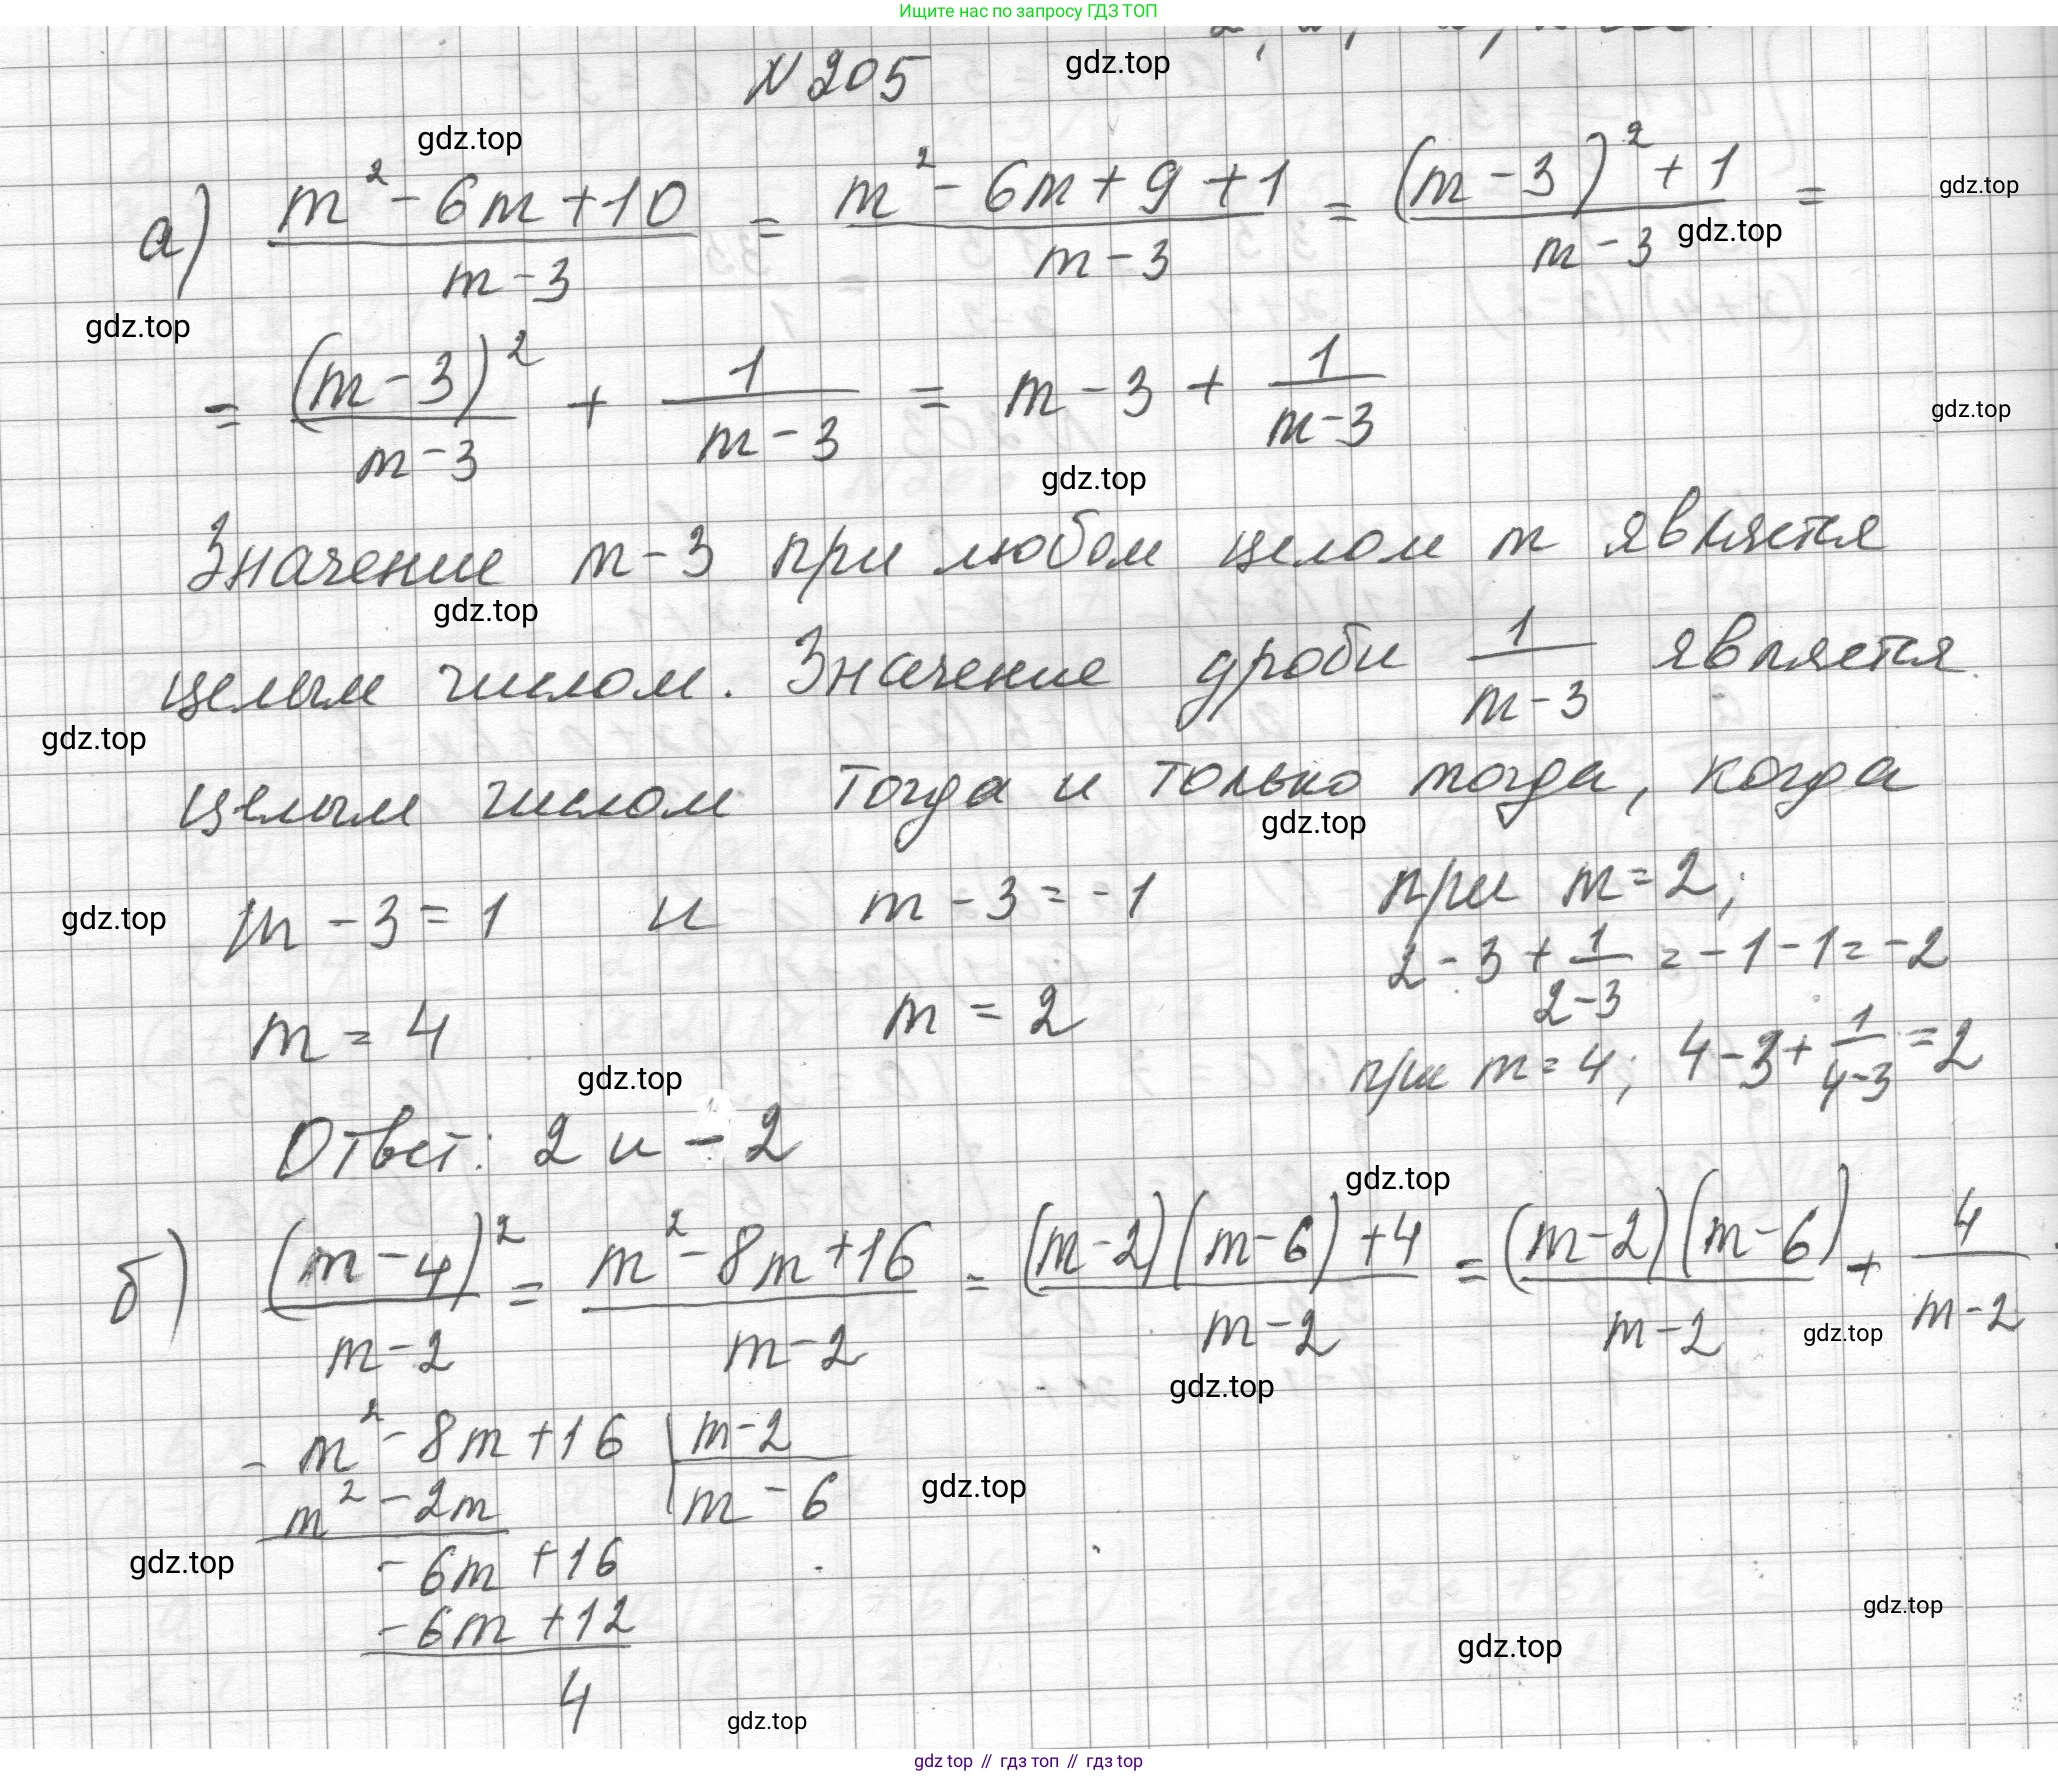 Ищите нас по запросу ГДЗ ТОП
N 205
gdz.top
gdz.top
а) (m² - 6m + 10)/(m - 3) = (m² - 6m + 9 + 1)/(m - 3) = ((m - 3)² + 1)/(m - 3) =
gdz.top
gdz.top
gdz.top
= (m - 3)²/(m - 3) + 1/(m - 3) = m - 3 + 1/(m - 3)
gdz.top
gdz.top
Значение m - 3 при любом целом m является
gdz.top
целым числом. Значение дроби 1/(m - 3) является
gdz.top
целым числом тогда и только тогда, когда
gdz.top
gdz.top
m - 3 = 1 и m - 3 = -1 при m = 2;
2 - 3 + 1/(2 - 3) = -1 - 1 = -2
m = 4 m = 2
при m = 4; 4 - 3 + 1/(4 - 3) = 2
gdz.top
Ответ: 2 и -2
gdz.top
б) (m - 4)²/(m - 2) = (m² - 8m + 16)/(m - 2) = ((m - 2)(m - 6) + 4)/(m - 2) = (m - 2)(m - 6)/(m - 2) + 4/(m - 2)
gdz.top
gdz.top
- m² - 8m + 16 | m - 2
m² - 2m | m - 6
gdz.top
- 6m + 16
gdz.top
- 6m + 12
gdz.top
gdz.top
4
gdz.top
gdz top // гдз топ // гдз top